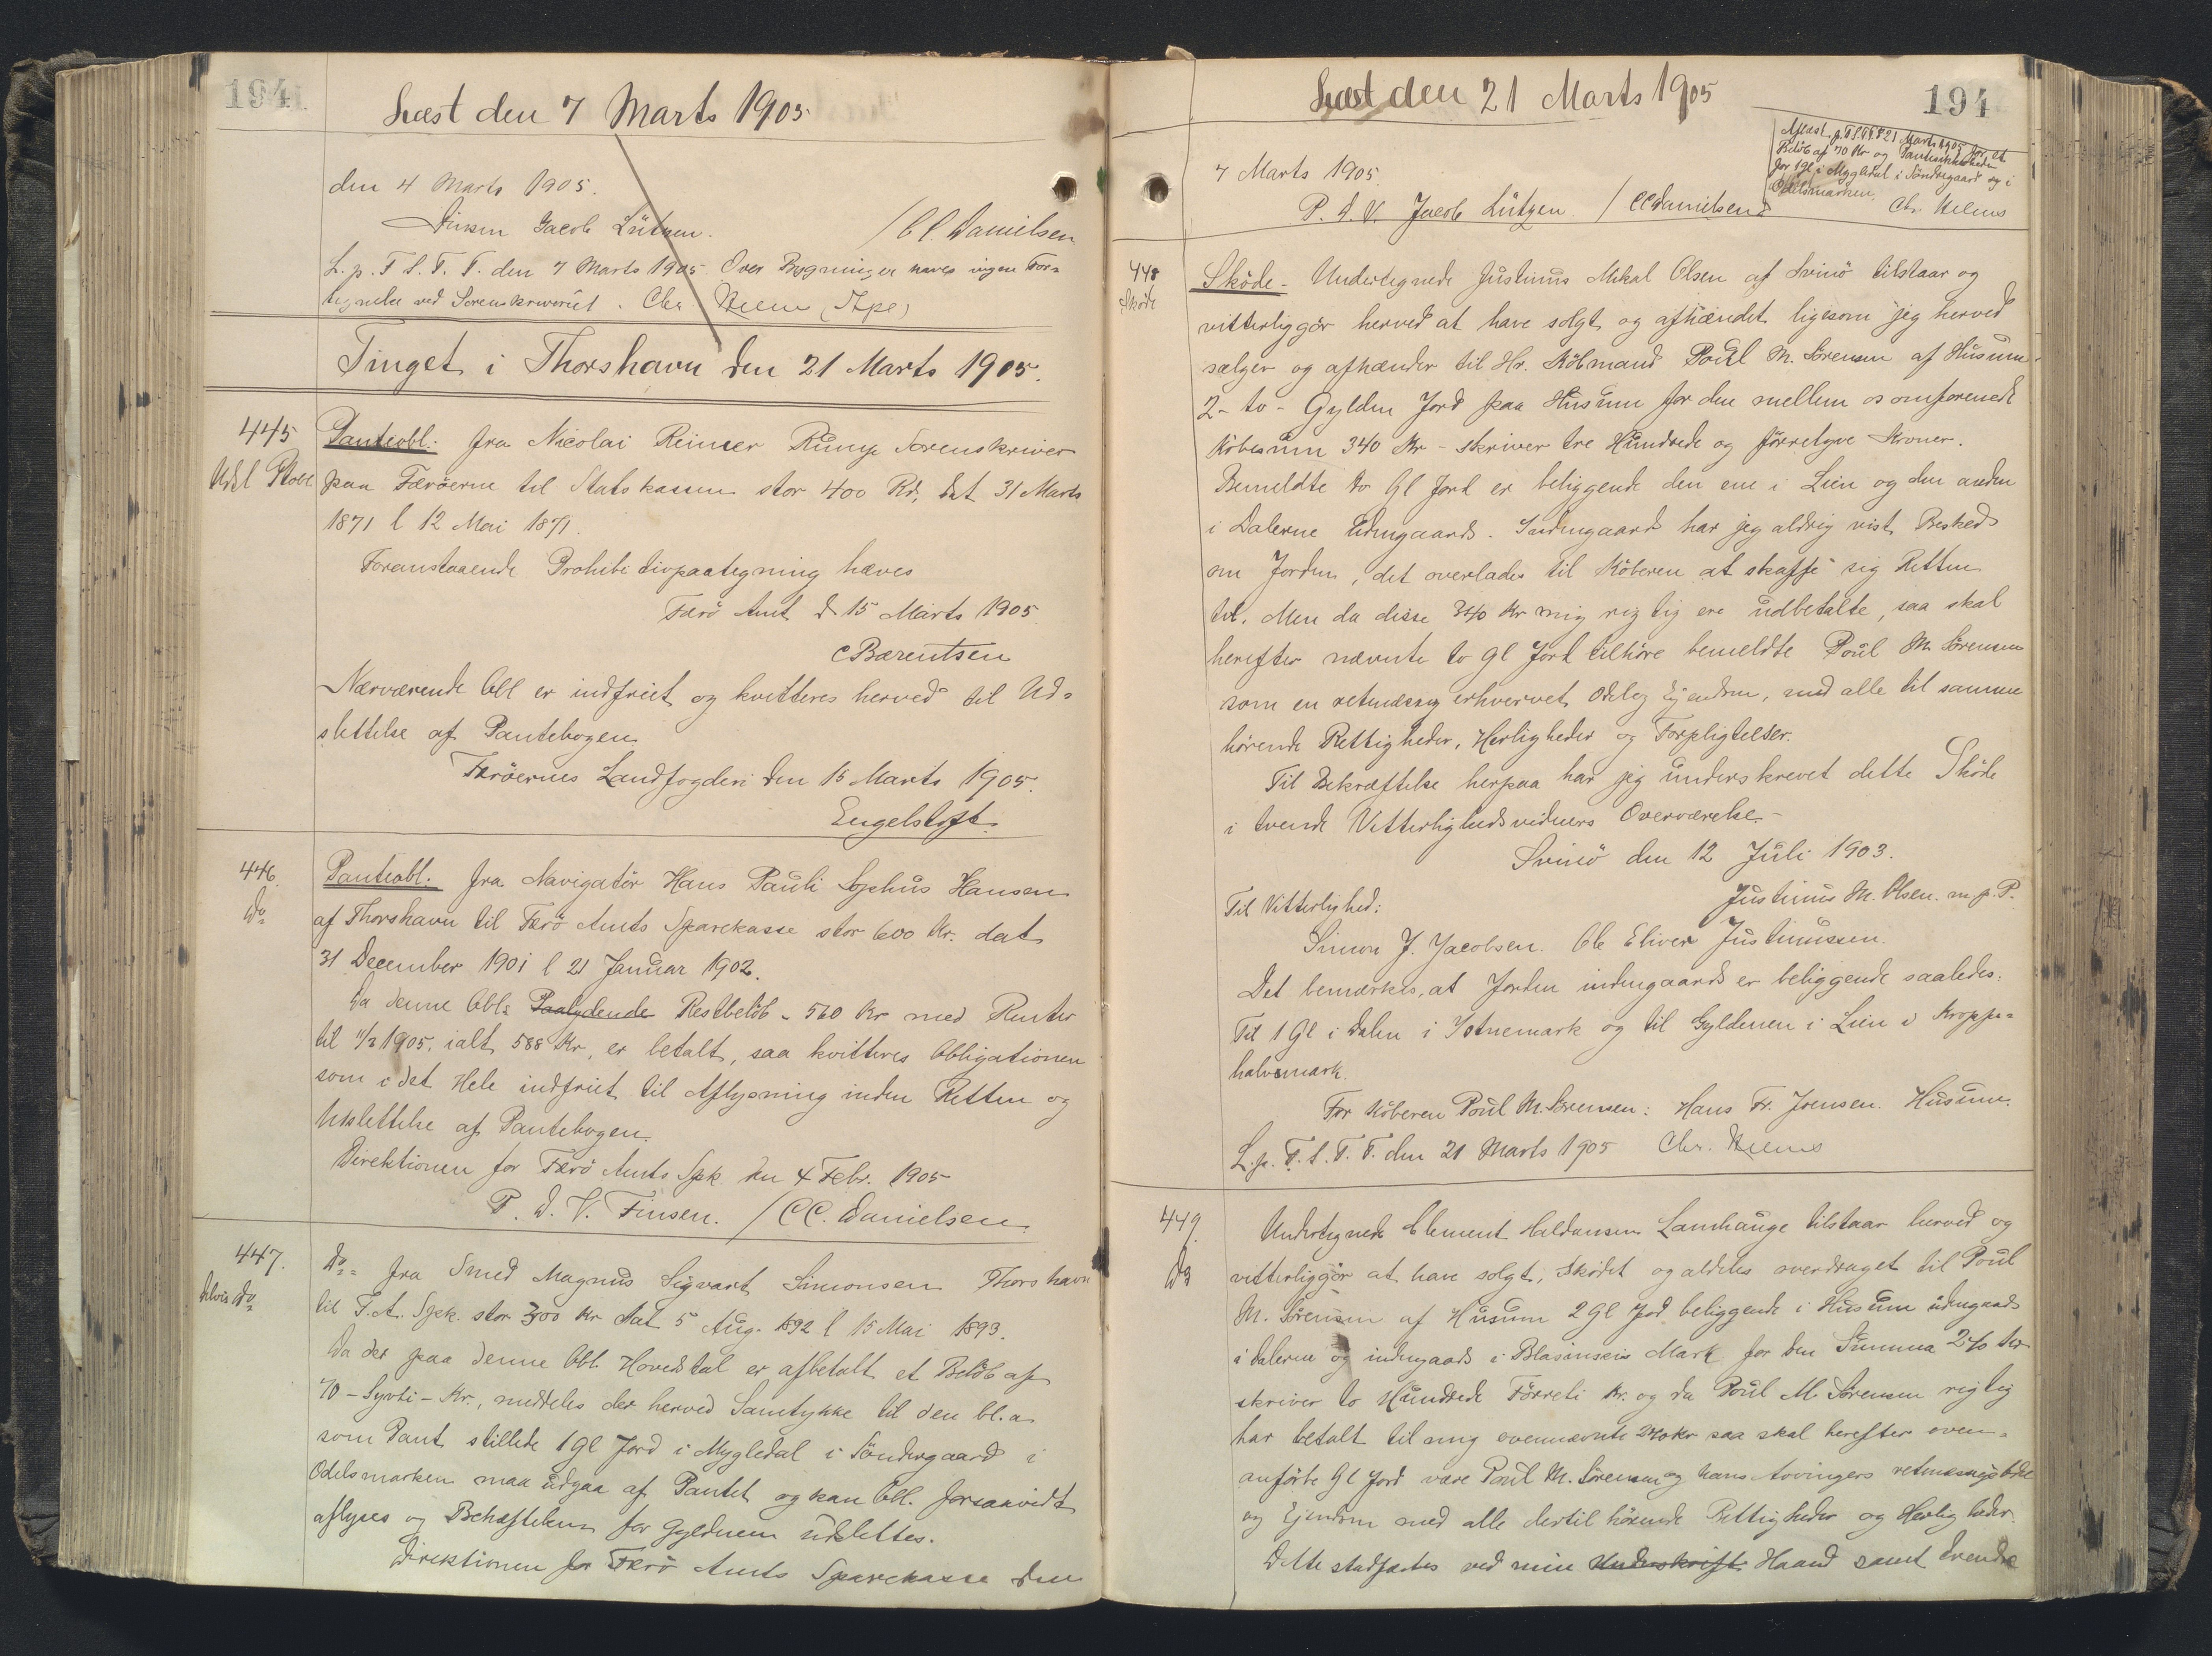 194
Læst den 7 Marts 1905
den 4 Marts 1905.
Finsen Jacob Lützen. / C C. Danielsen
L. p. F S. T. T. den 7 Marts 1905 Over Bygninger haves ingen For-
tegnelse ved Sorenskriveriet. Chr
Tinget i Thorshavn den 21 Marts 1905.
445
Udsl Ptobl
Panteobl. fra Nicolai Reimer Runge Sorenskriver
paa Færöerne til Statskassen stor 400 Rd, dat 31 Marts
1871 l 12 Mai 1871.
Foranstaaende Prohibitivpaategning hæves
Færö Amt d 15 Marts 1905.
CBærentsen
Nærværende Obl er indfriet og kvitteres herved til Ud-
slettelse af Pantebogen
Færöernes Landfogderi den 15 Marts 1905.
Engelstoft.
446.
Do
Panteobl. fra Navigatör Hans Pauli Sophus Hansen
af Thorshavn til Færö Amts Sparekasse stor 600 Kr. dat
31 December 1901 l 21 Januar 1902.
Da denne Obls Paalydende Restbelöb - 560 Kr med Renter
til 11/3 1905, ialt 588 Kr, er betalt, saa kvitteres Obligationen
som i det Hele indfriet til Aflysning inden Retten og
Udslettelse af Pantebogen.
Direktionen for Færö Amts Spk. den 4 Febr. 1905
P. D. V. Finsen. / CC. Danielsen
447.
delvis Do
Do fra Smed Magnus Sigvart Simonsen Thorshavn
til F. A. Spk. stor 300 Kr dat 5 Aug. 1892 l 15 Mai 1893.
Da der paa denne Obl. Hovedstol er afbetalt et Belöb af
70 - Syvti - Kr., meddeles der herved Samtykke til den bl. a.
som Pant stillede 1 Gl Jord i Mygledal i Söndregaard i
Odelsmarken maa udgaa af Pantet og kan Obl. forsaavidt
aflyses og Behæftelsen for Gyldenen udslettes.
Direktionen for Færö Amts Sparekasse den
Læst den 21 Marts 1905
194
Aflæst p. F. S. T. T. d 21 Marts 1905 for et
Belöb af 70 Kr og Pantesikkerheden
for 1 Gl i Mygledal i Söndregaard og i
Odelsmarken.
Chr. Nielms
7 Marts 1905.
P. D. V. Jacob Lützen. / CCDanielsen
448
Sköde
Sköde - Undertegnede Justinus Mikal Olsen af Svinö tilstaar og
vitterliggör herved at have solgt og afhændet ligesom jeg herved
sælger og afhænder til Hr. Köbmand Poul M. Sörensen af Husum
2 - to - Gylden Jord paa Husum for den mellem os omforenede
Köbesum 340 Kr - skriver tre Hundrede og förretyve Kroner.
Bemeldte to Gl Jord er beliggende den ene i Lien og den anden
i Dalerne Udengaards. Indengaards har jeg aldrig vist Besked
om Jorden, det overlades til Köberen at skaffe sig Retten
til. Men da disse 340 Kr mig rigtig ere udbetalte, saa skal
herefter nævnte to Gl Jord tilhöre bemeldte Poul M. Sörensen
som en retmæssig erhvervet Odels Ejendom, med alle til samme
hörende Rettigheder, Herligheder og Forpligtelser.
Til Bekræftelse herpaa har jeg underskrevet dette Sköde
i tvende Vitterlighedsvidners Overværelse -
Svinö den 12 Juli 1903.
Justinus M. Olsen. m. p. P.
Til Vitterlighed:
Simon J. Jacobsen. Ole Eliver Justinussen.
Det bemærkes, at Jorden indengaards er beliggende saaledes:
Til 1 Gl i Dalen i Yotnemark og til Gyldenen i Lien i Kroppa-
halvemark.
For Köberen Poul M. Sörensen: Hans Fr. Joensen. Husum.
L. p. F. S. T. T. den 21 Marts 1905 Chr. Nielms
449.
Do
Undertegnede Clement Haldansen Lamhauge tilstaar herved og
vitterliggör at have solgt, skødet og aldeles overdraget til Poul
M. Sörensen af Husum 2 Gl Jord beliggende i Husum udengaards
i Dalerne og indengaards i Blasinsens Mark for den Summa 240 Kr
skriver to Hundrede Förreti Kr. og da Poul M. Sörensen rigtig
har betalt til mig ovennævnte 240 Kr saa skal herefter oven-
anförte Gl Jord være Poul M. Sörensen og hans Arvingers retmæssige Odel
og Ejendom med alle dertil hörende Rettigheder og Herligheder.
Dette stadfæstes ved min Underskrift Haand samt tvende